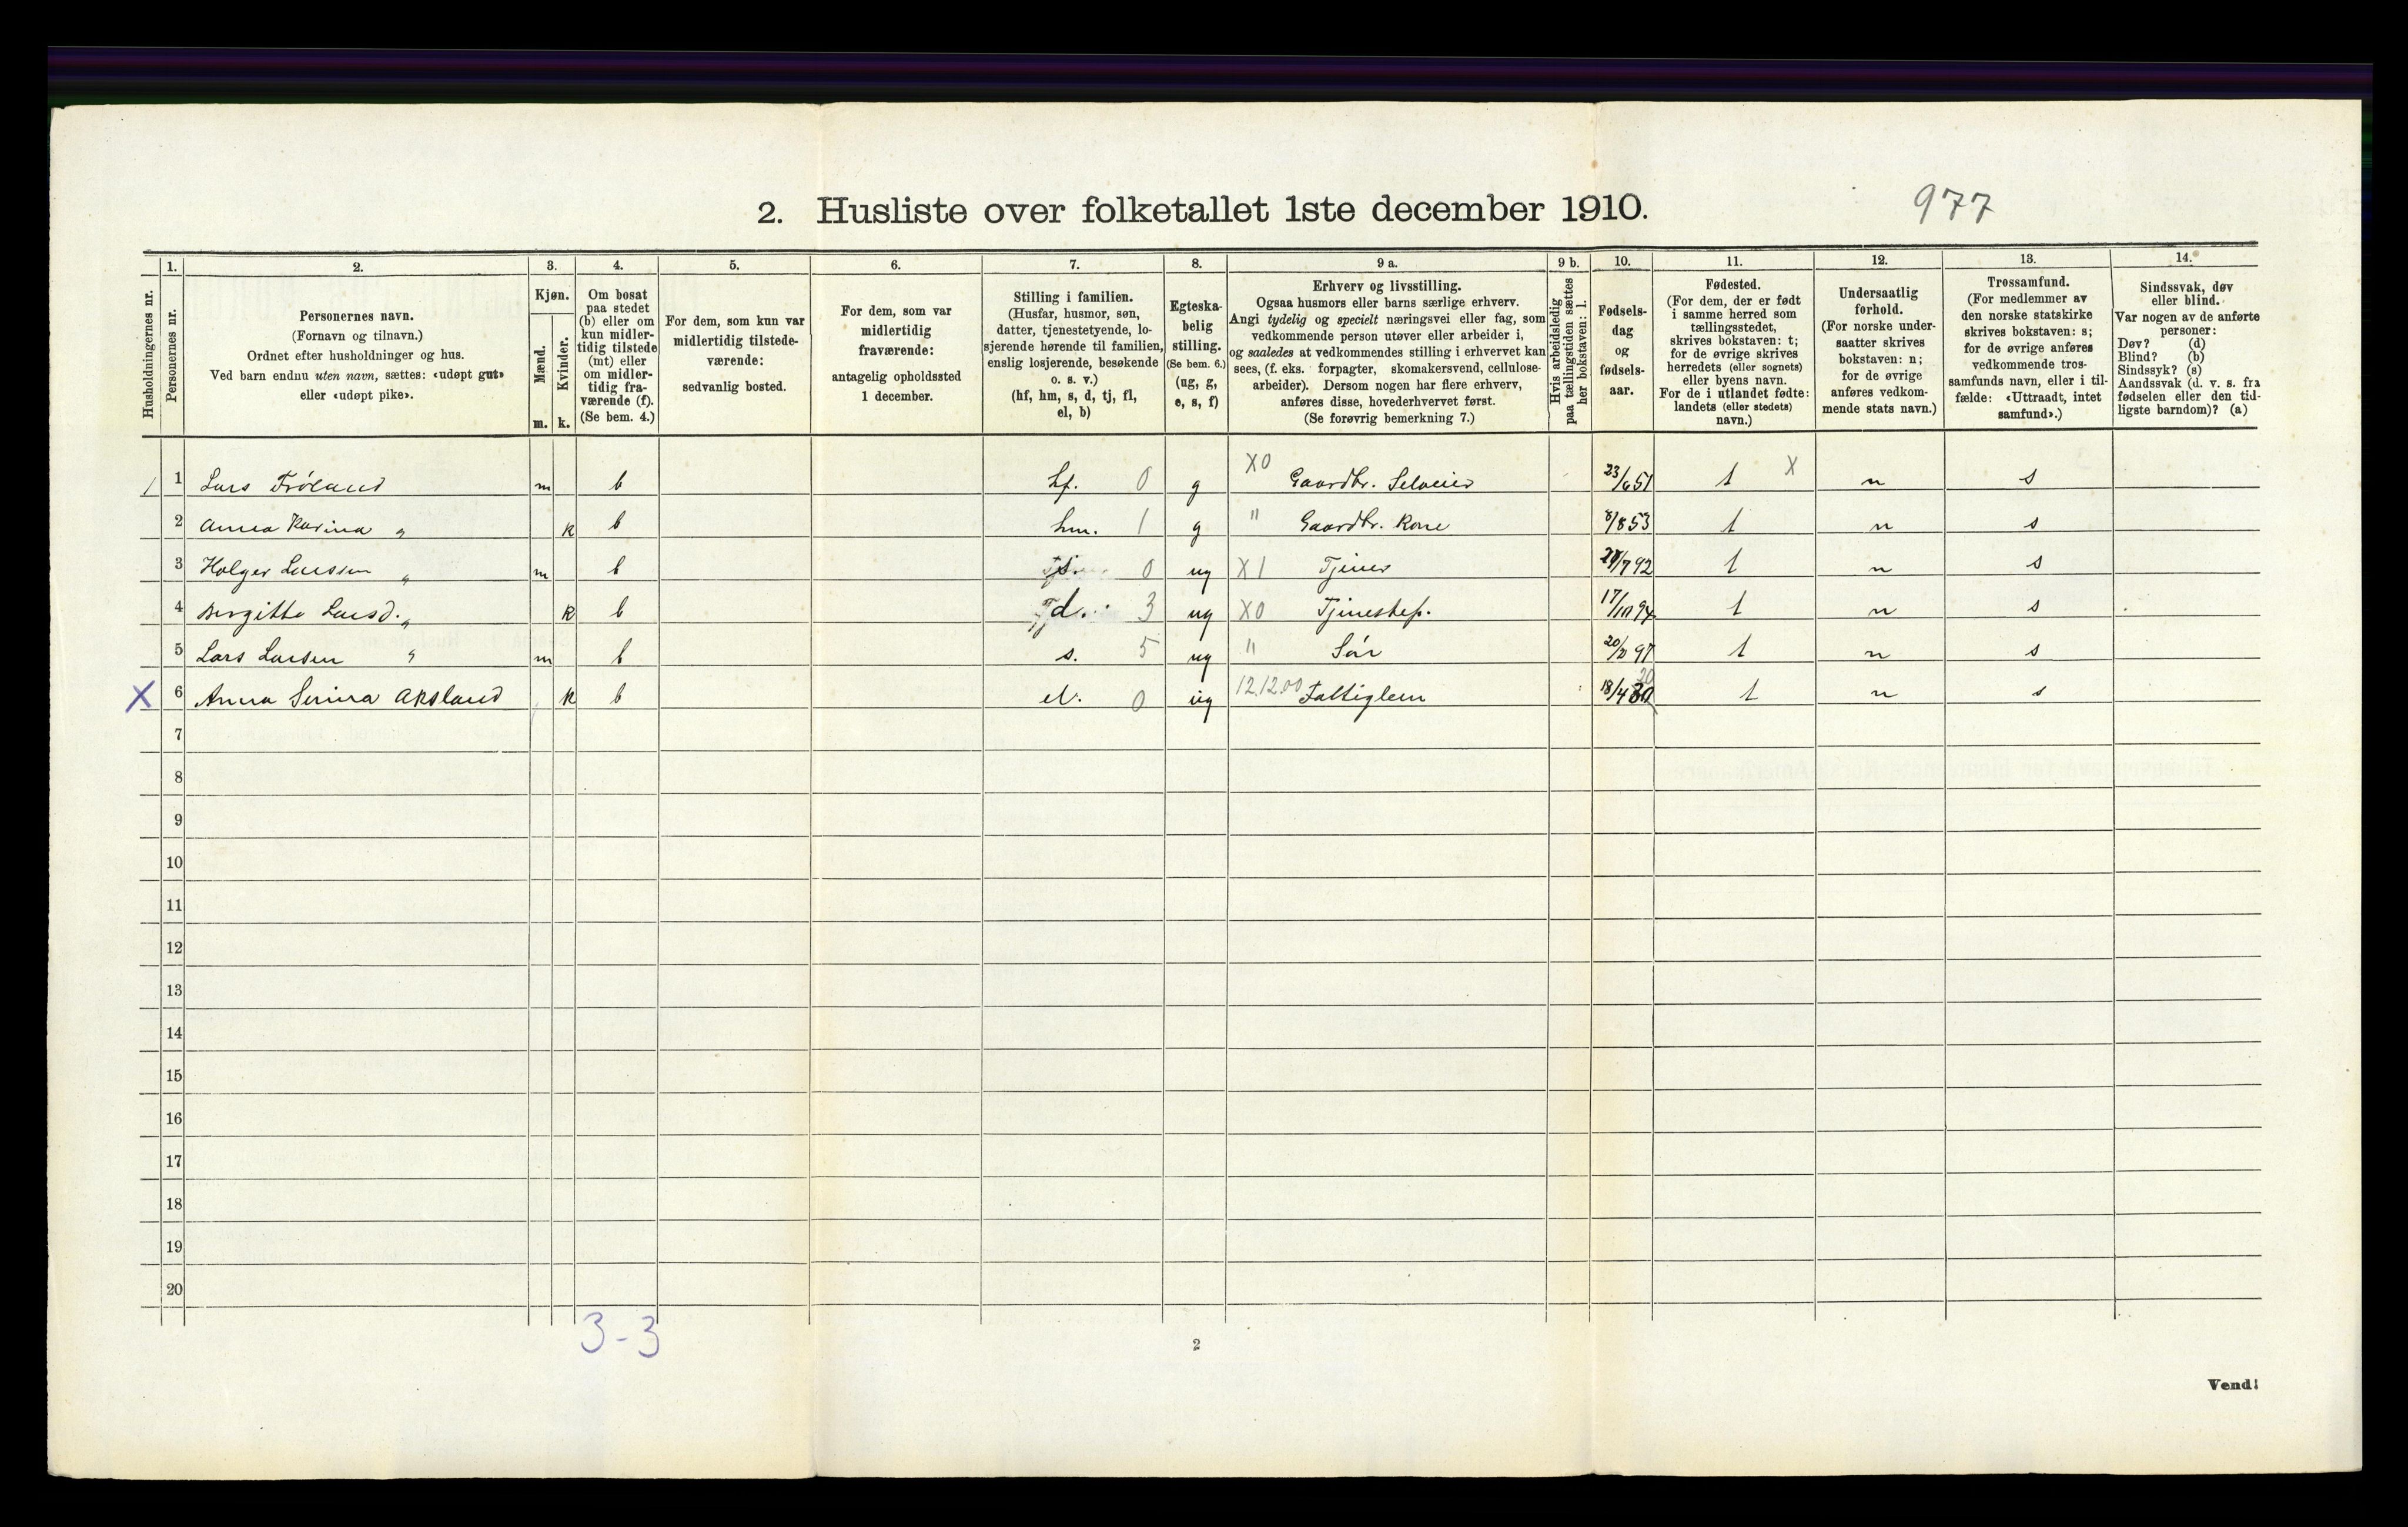 2. Husliste over folketallet 1ste december 1910.
977
1. 2. 3. 4. 5. 6. 7. 8. 9 a. 9 b. 10. 11. 12. 13. 14.
Husholdningernes nr.
Personernes nr.
Personernes navn.
(Fornavn og tilnavn.)
Ordnet efter husholdninger og hus.
Ved barn endnu uten navn, sættes: «udøpt gut»
eller «udøpt pike».
Kjøn.
Mænd.
Kvinder.
m. k.
Om bosat
paa stedet
(b) eller om
kun midler-
tidig tilstede
(mt) eller
om midler-
tidig fra-
værende (f).
(Se bem. 4.)
For dem, som kun var
midlertidig tilstede-
værende:
sedvanlig bosted.
For dem, som var
midlertidig
fraværende:
antagelig opholdssted
1 december.
Stilling i familien.
(Husfar, husmor, søn,
datter, tjenestetyende, lo-
sjerende hørende til familien,
enslig losjerende, besøkende
o. s. v.)
(hf, hm, s, d, tj, fl,
el, b)
Egteska-
belig
stilling.
(Se bem. 6.)
(ug, g,
e, s, f)
Erhverv og livsstilling.
Ogsaa husmors eller barns særlige erhverv.
Angi tydelig og specielt næringsvei eller fag, som
vedkommende person utøver eller arbeider i,
og saaledes at vedkommendes stilling i erhvervet kan
sees, (f. eks. forpagter, skomakersvend, cellulose-
arbeider). Dersom nogen har flere erhverv,
anføres disse, hovederhvervet først.
(Se forøvrig bemerkning 7.)
Hvis arbeidsledig
paa tællingstiden sættes
her bokstaven: l.
Fødsels-
dag
og
fødsels-
aar.
Fødested.
(For dem, der er født
i samme herred som
tællingsstedet,
skrives bokstaven: t;
for de øvrige skrives
herredets (eller sognets)
eller byens navn.
For de i utlandet fødte:
landets (eller stedets)
navn.)
Undersaatlig
forhold.
(For norske under-
saatter skrives
bokstaven: n;
for de øvrige
anføres vedkom-
mende stats navn.)
Trossamfund.
(For medlemmer av
den norske statskirke
skrives bokstaven: s;
for de øvrige anføres
vedkommende tros-
samfunds navn, eller i til-
fælde: «Uttraadt, intet
samfund».)
Sindssvak, døv
eller blind.
Var nogen av de anførte
personer:
Døv? (d)
Blind? (b)
Sindssyk? (s)
Aandssvak (d. v. s. fra
fødselen eller den tid-
ligste barndom)? (a)
1 1 Lars Fröland m b hf. 0 g X0 Gaardbr. Selveier 23/6 51 t X n s
2 Anna Karina " k b hm. 1 g " Gaardbr. Kone 8/8 53 t n s
3 Holger Larssen " m b s. 0 ug X1 Tjener /7 92 t n s
4 Bergitte Larsd. " k b d. 3 ug X0 Tjenestep. 17/10 94 t n s
5 Lars Larsen " m b s. 5 ug " Sön 97 t n s
X 6 Anna Serina Aksland k b el. 0 ug 12.12.00 Fattiglem 18/4 20 t n s
7
8
9
10
11
12
13
14
15
16
17
18
19
20
3-3
2
Vend!